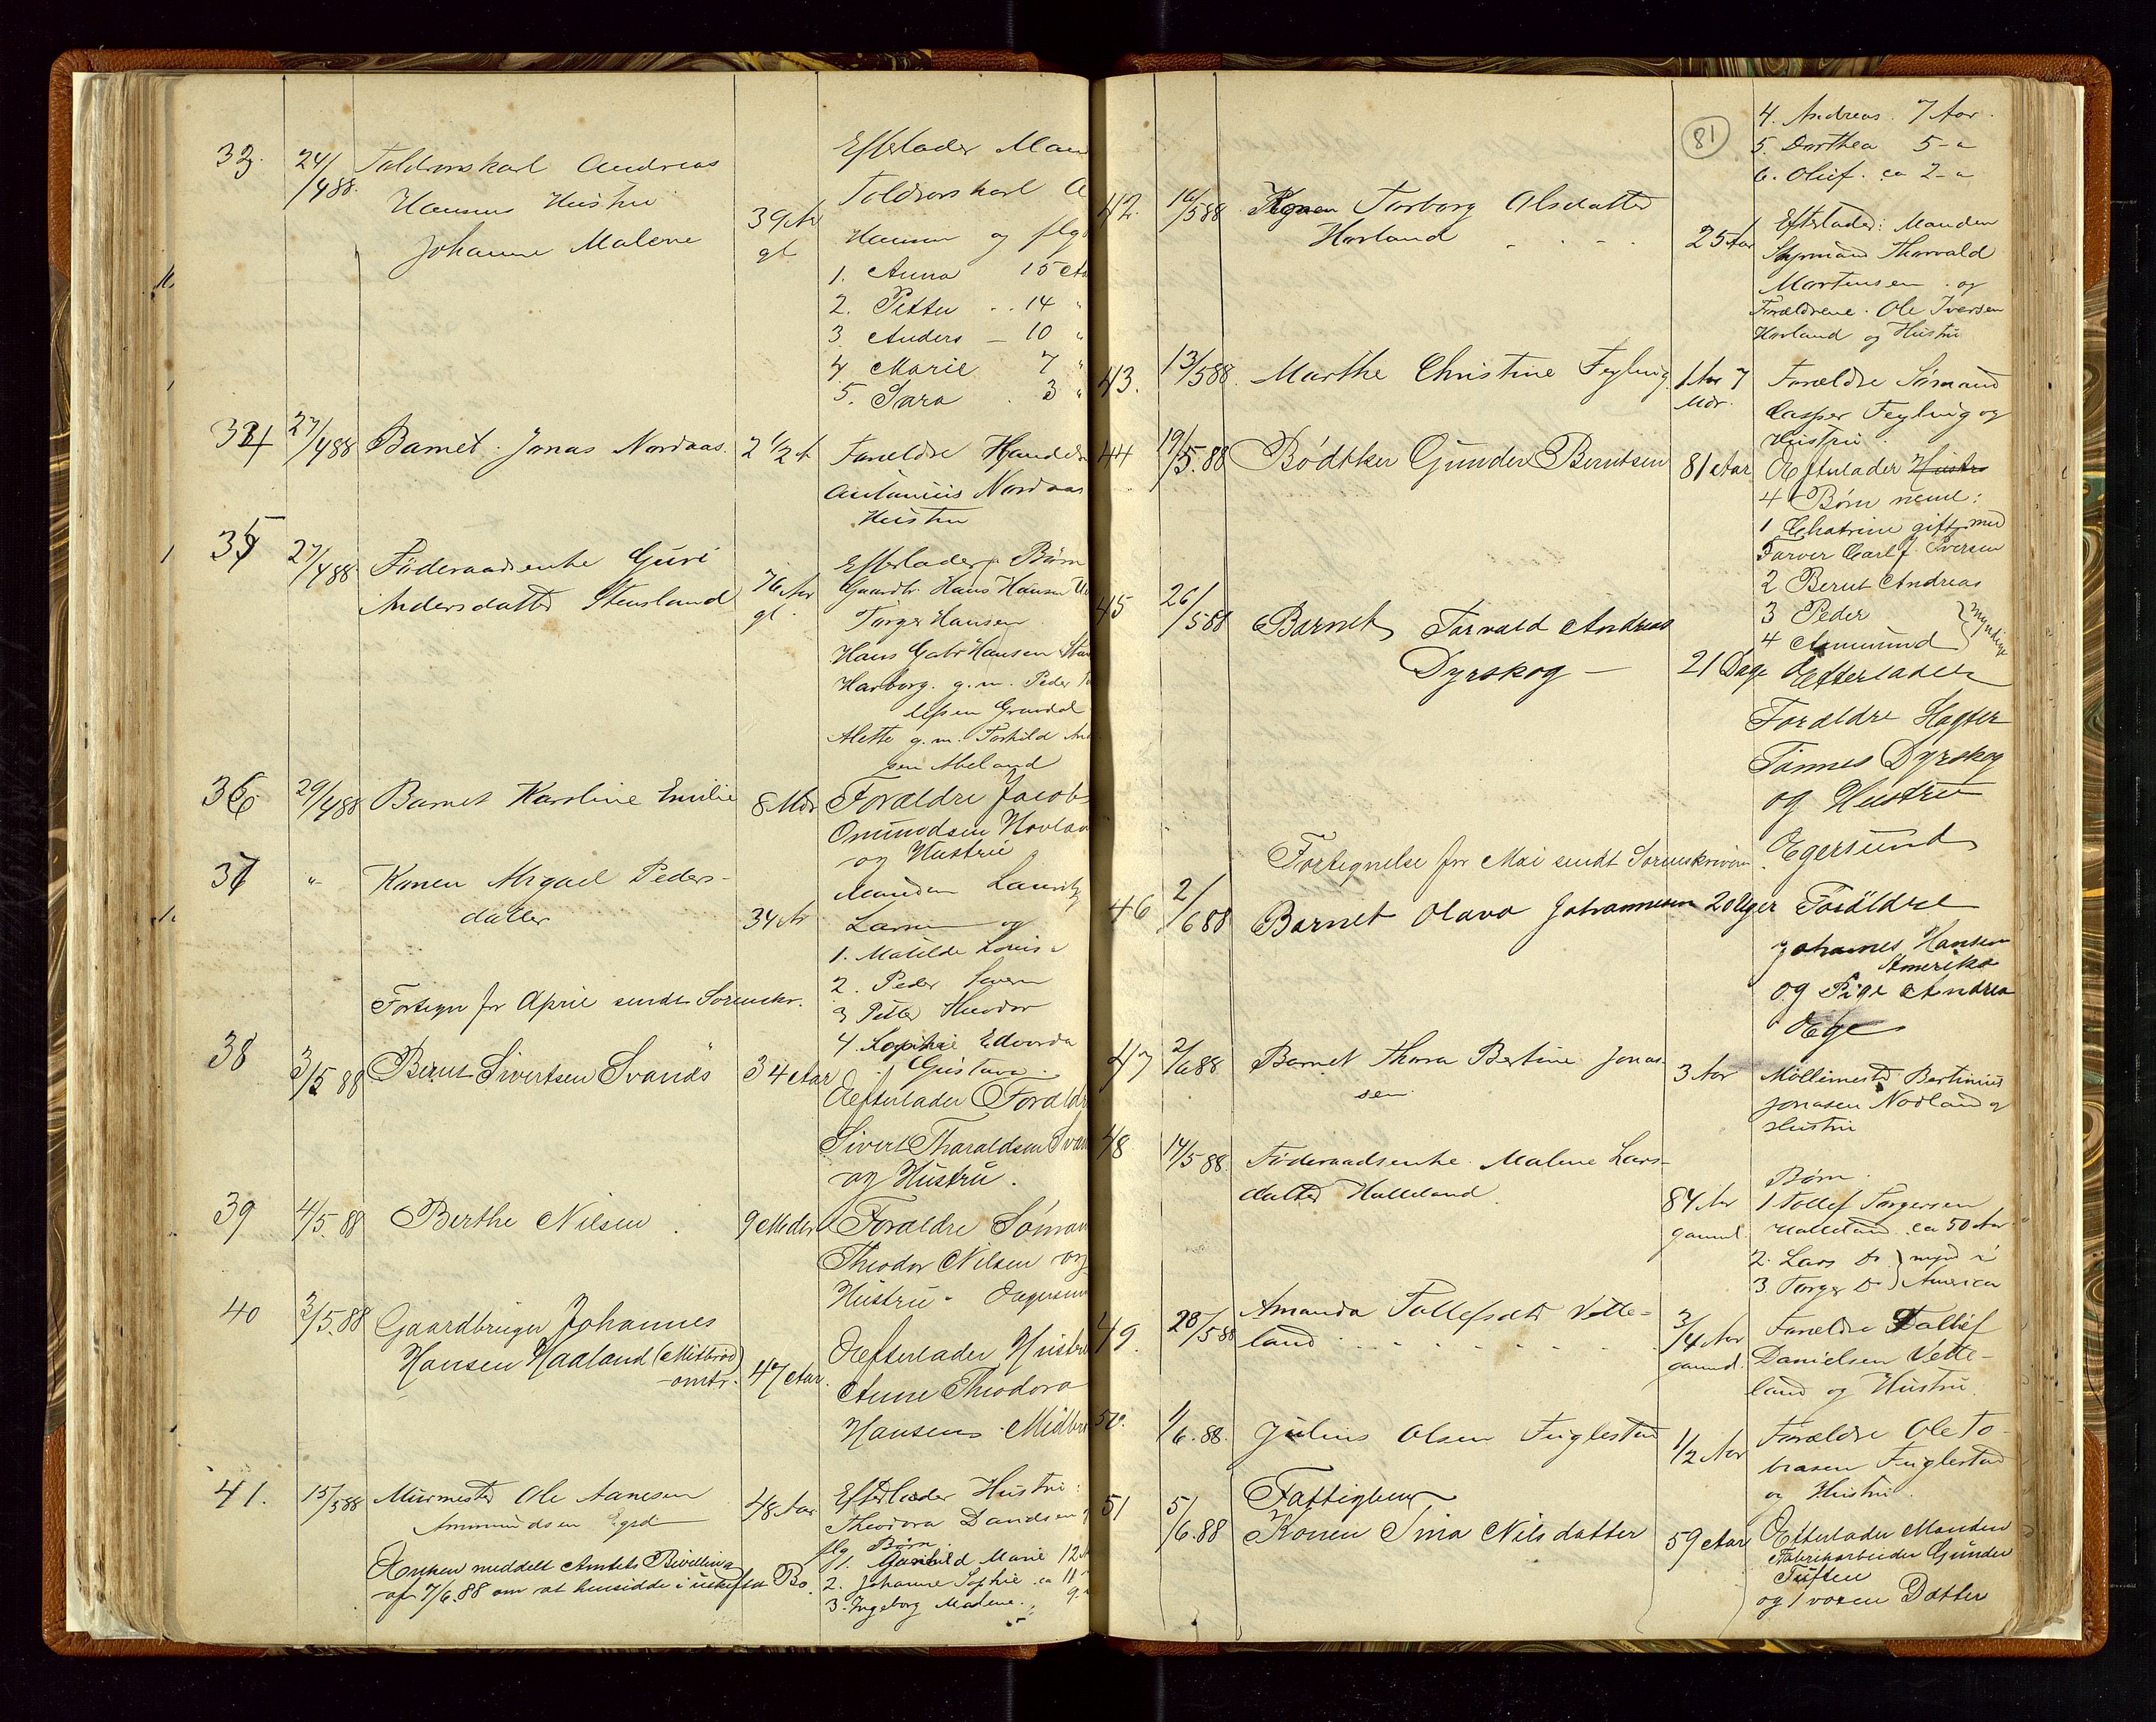 33. 24/4 88. Toldroerskarl Andreas
Hansens Hustru
Johanne Malene
39 Ar
gl
Efterlader Man
Toldroerskarl A
Hansen og flg
1. Anna 15 Aa
2. Petter 14 "
3. Anders — 10 "
4. Marie 7 "
5. Sara 3 "
34 27/4 88 Barnet Jonas Nordaas. 2 1/2 A
Forældre Handels
Antonius Nordaas
Hustru
35 27/4 88 Föderaadsenke Guri
Andersdatter Stensland
76 Aar
gl.
Efterlader Børn
Gaardbr. Hans Hansen
Torger Hansen
Hans Gabr Hansen
g. m. Peder
Grøndal
Alette g. m. Torkild An
sen Abeland
36 29/4 88 Barnet Karoline Emilie 8 Mdr
Forældre Jacob
Omundsen Hovlan
og Hustru
37 " Konen Abigael Peders-
datter
34 Ar
Manden Lauritz
Larsen og
1. Matilde Lovise
2. Peder
3 Petter Theodor
4. Sophie Edvarda
Gustava.
Fortegn for April sendt Sorenskr.
38 3/5 88 Bernt Sivertsen Svanøs 34 Aar
Efterlader Foraldre
Sivert Tharaldsen Svan
og Hustru.
39 4/5. 88 Berthe Nilsen 9 Mdr
Foraldre Söman
Theodor Nilsen og
Hustru. Eegersun
40 3/5. 88 Gaardbruger Johannes
Hansen Haaland (Mitbrød)
omtr. 47 Aar.
Efterlader Hustru
Anne Theodora
Hansens Midbr
41. 15/5 88 Murmester Ole Aanesen
Ammundsen Egrd
48 Aar
Efterlader Hustru:
Theodora Danielsen
flg Børn.
1. Marie 12
2. Johanne Sophie ca 11
3. Ingeborg Malene. 9
Enken meddelt Amtets Bevilling
af 7/6. 88 om at hensidde i uskiftet Bo.
81
4. Andreas 7 Aar.
5. Dorthea 5 - "
6. Oluf. ca 2 - "
42. 16/5 88 Konen Torborg Olsdatter
Hovland
25 Aar
Efterlader: Manden
Styrmand Thorvald
Martensen og
Forældrene Ole Iversen
Hovland og Hustru
43. 13/5 88. Marthe Christine Feyling 1 Aar 7
Mdr.
Forældre Sömand
Casper Feyling og
Hustru.
44 19/5. 88 Bødtker Gunder Berntsen 81 Aar
Efterlader Hustru
4 Børn neml:
1 Chatrine gift med
Farver Carl J. Iversen
2 Bernt Andreas
3 Peder
4 Ammund
myndige
45 26/5 88 Barnet Torvald Andreas
Dyrskog — 21 Dage
Efterlader
Foraldre
Tönnes Dyrskog
og Hustru
Egersund
Fortegnelse for Mai sendt Sorenskriveren
46 2/6 88 Barnet Olava Johannesen 20 Uger
Foräldre
Johannes Hansen
Amerika
og Pige Andrea
Ege
47 2/6 88 Barnet Thora Bertine Jonas-
sen
3 Aar
Møllemester Bertinius
Jonasen Nodland og
Hustru
48 14/5 88. Føderaadsenke Malene Lars-
datter Halleland
84 Ar
gammel
Børn.
1 Tollef Torgersen
Halleland ca 50 Aar
2. Lars Do } mynd i
3. Torger Do } America
49. 28/5 88 Amanda Tollefsdtr Vette-
land
3/4 Aar
gammel.
Forældre Tollef
Danielsen Vette-
land og Hustru
50. 1/6. 88. Julius Olsen Fuglestad 1/2 Aar
Forældre Ole To-
biasen Fuglestad
og Hustru.
51 5/6. 88 Fattiglem
Konen Sina Nilsdatter 59 Aar
Efterlader Manden
Fabrikarbeider Gunder
Tuften
og 1 voxen Datter